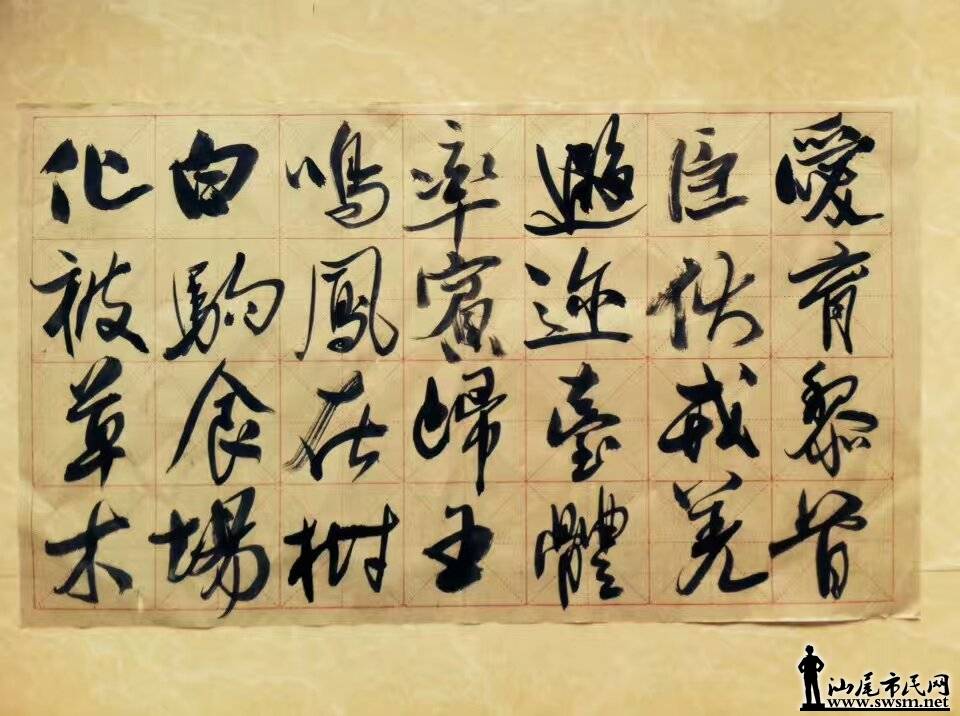 愛育黎首
臣伏戎羌
遐迩臺體
率賓歸王
鳴鳳在樹
白駒食場
化被草木
汕尾市民网
www.swsm.net